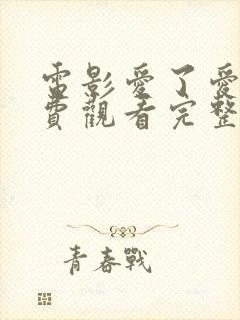 電影愛了愛
費觀看完整
青春戰